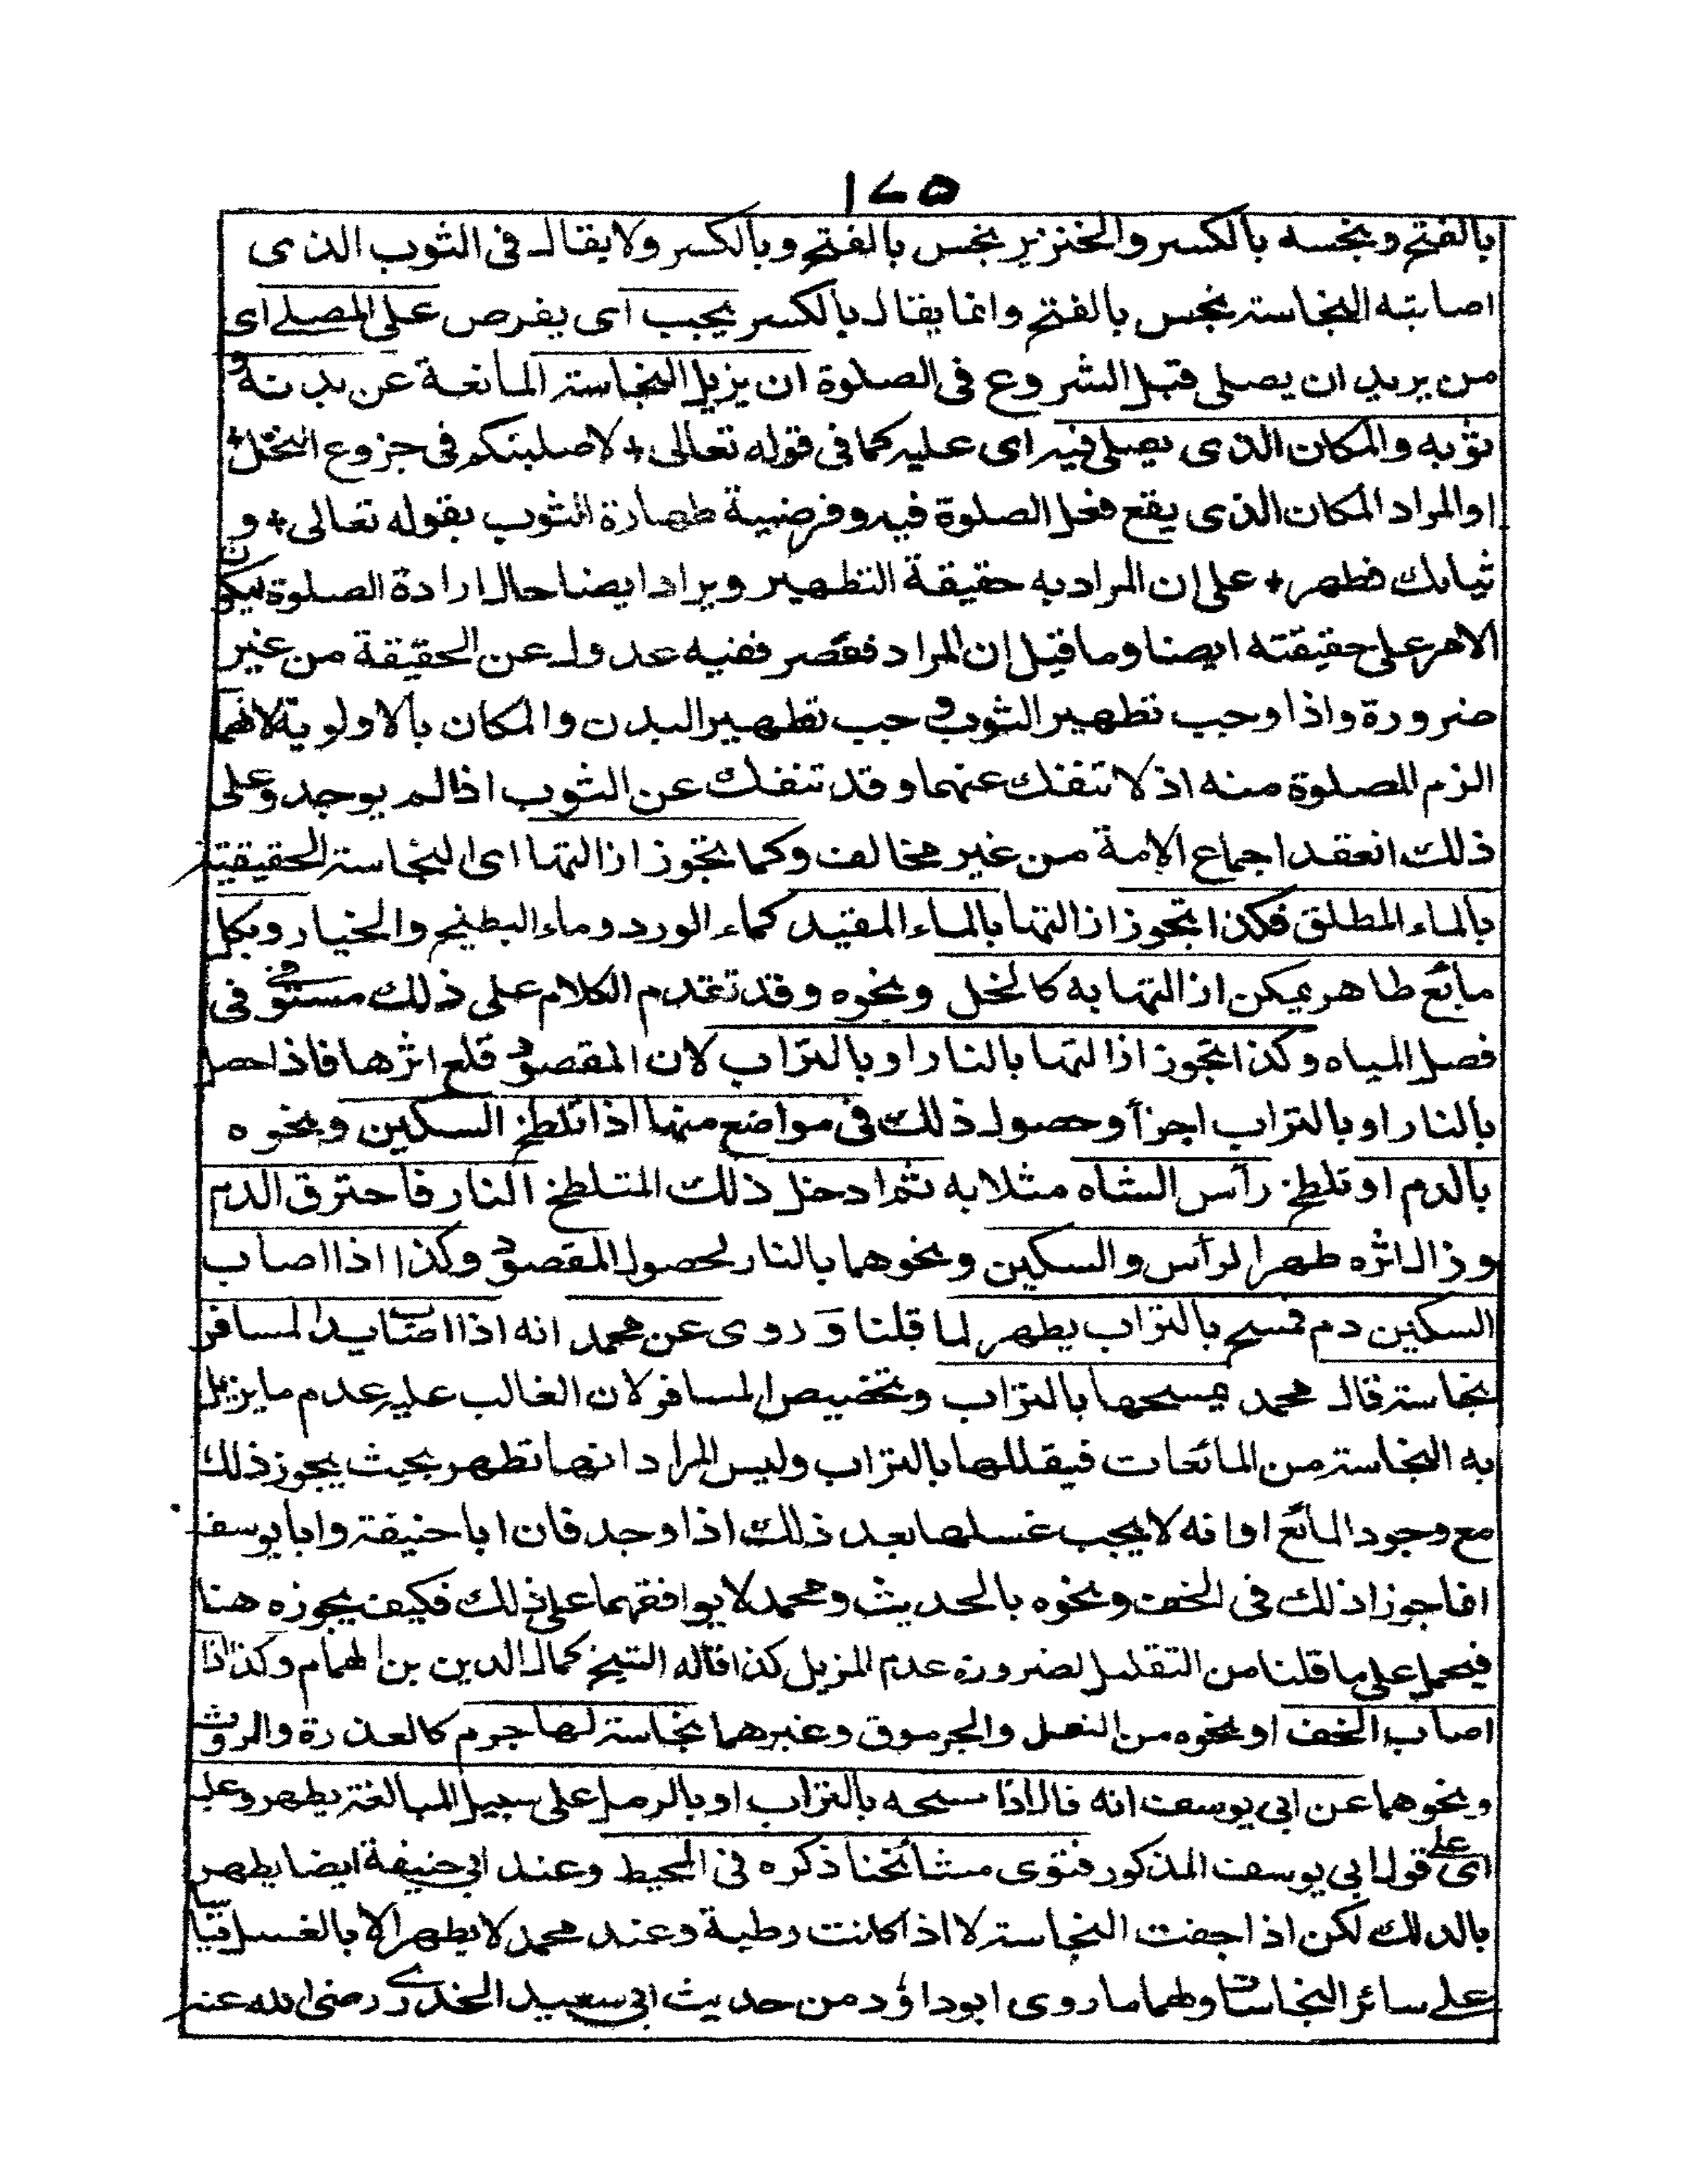 ١٧٥
بالفتح ونجسه بالكسر والخنزير نجس بالفتح وبالكسر ولا يقال فى الثوب الذى
اصابته النجاسة نجس بالفتح وانما يقال بالكسر يجب اى يفرض على المصلے اى
من يريد ان يصلى قبل الشروع فى الصلوة ان يزيل النجاسة المانعة عن بدنه و
ثوبه والمكان الذى يصلى فيه اى عليه كما فى قوله تعالى + لاصلبنكم فى جزوع النخل +
او المراد المكان الذى يقع فعل الصلوة فيه وفرضية طهارة الثوب بقوله تعالى + و
ثيابك فطهر + على ان المراد به حقيقة التطهير ويراد ايضا حال ارادة الصلوة ليكون
الامر على حقيقته ايضا وما قيل ان المراد فقصر ففيه عدول عن الحقيقة من غير
ضرورة واذا وجب تطهير الثوب وجب تطهير البدن والمكان بالاولوية لانهما
الزم للصلوة منه اذ لا تنفك عنهما وقد تنفك عن الثوب اذا لم يوجد وعلى
ذلك انعقد اجماع الامة من غير مخالف وكما تجوز ازالتها اى النجاسة الحقيقية
بالماء المطلق فكذا تجوز ازالتها بالماء المقيد كماء الورد وماء البطيخ والخيار وبكل
مائع طاهر يمكن ازالتها به كالخل ونحوه وقد تقدم الكلام على ذلك مستوفى فى
فصل المياه وكذا تجوز ازالتها بالنار او بالتراب لان المقصود قلع اثرها فاذا حصل
بالنار او بالتراب اجزأ وحصول ذلك فى مواضع منها اذا تلطخ السكين ونحوه
بالدم او تلطخ رأس الشاه مثلا به ثم ادخل ذلك المتلطخ النار فاحترق الدم
وزال اثره طهر الرأس والسكين ونحوهما بالنار لحصول المقصود وكذا اذا اصاب
السكين دم فمسح بالتراب يطهر لما قلنا وَروى عن محمد انه اذا اصاب يد المسافر
نجاسة قال محمد يمسحها بالتراب وتخصيص المسافر لان الغالب عليه عدم ما يزيل
به النجاسة من المائعات فيقللها بالتراب وليس المراد انها تطهر بحيث يجوز ذلك
مع وجود المائع او انه لا يجب غسلها بعد ذلك اذا وجد فان ابا حنيفة وابا يوسف
انما جوزا ذلك فى الخف ونحوه بالحديث ومحمد لا يوافقهما على ذلك فكيف يجوزه هنا
فيحمل على ما قلنا من التقليل لضرورة عدم المزيل كذا قاله الشيخ كمال الدين بن الهمام وكذا اذا
اصاب الخف او نحوه من النعل والجرموق وغيرهما نجاسة لها جرم كالعذرة والروث
ونحوهما عن ابى يوسف انه قال اذا مسحه بالتراب او بالرمل على سبيل المبالغة يطهر وعليه
اى على قول ابى يوسف المذكور فتوى مشائخنا ذكره فى المحيط وعند ابى حنيفة ايضا يطهر
بالدلك لكن اذا جفت النجاسة لا اذا كانت رطبة وعند محمد لا يطهر الا بالغسل قياسا
علے سائر النجاسات ولهما ما روى ابوداؤد من حديث ابى سعيد الخدرى رضى الله عنه